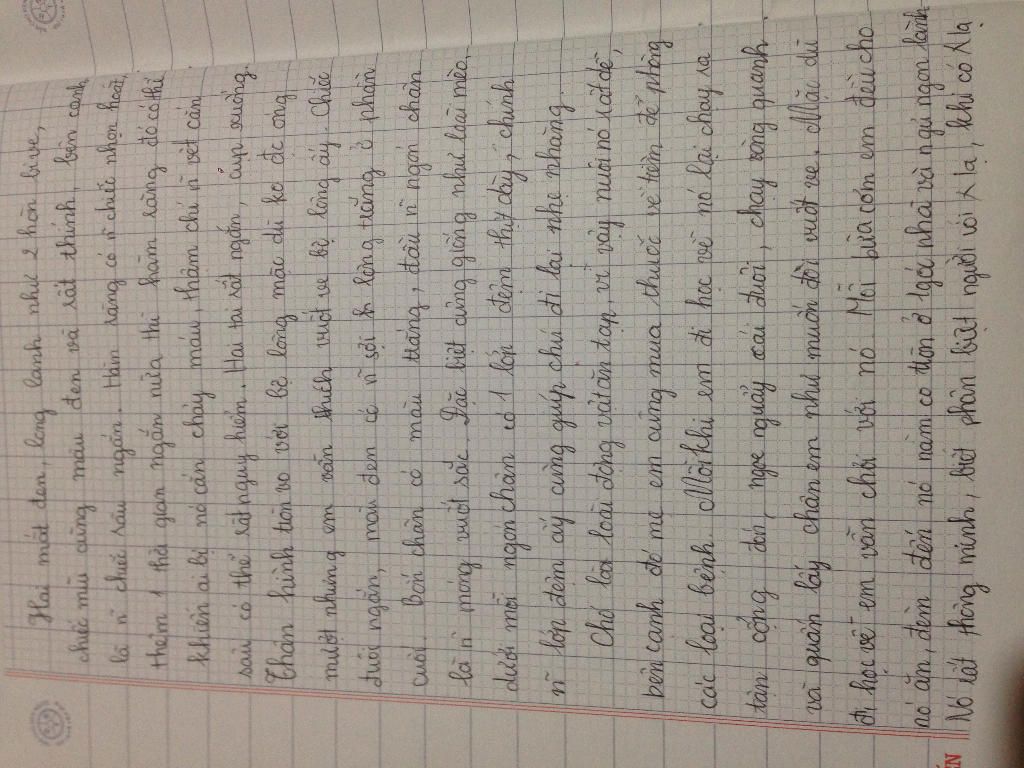 Hai mắt đen, long lanh như 2 hòn bi ve,
chiếc mũi cũng màu đen và rất thính, bên cạnh
là ñ chiếc râu ngắn. Hàm răng có ñ chiếc nhọn hoắt,
thêm 1 thời gian ngắn nữa thì hàm răng đó có thể
khiến ai bị nó cắn chảy máu, thậm chí ñ vết cắn
sâu có thể rất nguy hiểm. Hai tai rất ngắn, cụp xuống.
Thân hình tròn vo với bộ lông mài dù ko đc óng
mượt nhưng em vẫn thích vuốt ve bộ lông ấy. Chiếc
đuôi ngắn, màu đen có ñ sợi lông trắng ở phần
cuối. Bốn chân có màu trắng, đầu ñ ngón chân
là ñ móng vuốt sắc. Đặc biệt cũng giống như loài mèo,
dưới mỗi ngón chân có 1 lớp đệm thịt dày, chính
ñ lớp đệm ấy cũng giúp chú đi lại nhẹ nhàng.
Chó là loài động vật ăn tạp, vì vậy nuôi nó rất dễ,
bên cạnh đó mẹ em cũng mua thuốc về tiêm để phòng
các loại bệnh. Mỗi khi em đi học về nó lại chạy ra
tận cổng đón, ngoe nguẩy cái đuôi, chạy vòng quanh
và quấn lấy chân em như muốn đòi vuốt ve. Mặc dù
đi học về em vẫn chơi với nó Mỗi bữa cơm em đều cho
nó ăn, đêm đến nó nằm co tròn ở góc nhà và ngủ ngon lành
Nó rất thông minh, biết phân biệt người với lạ, khi có lạ